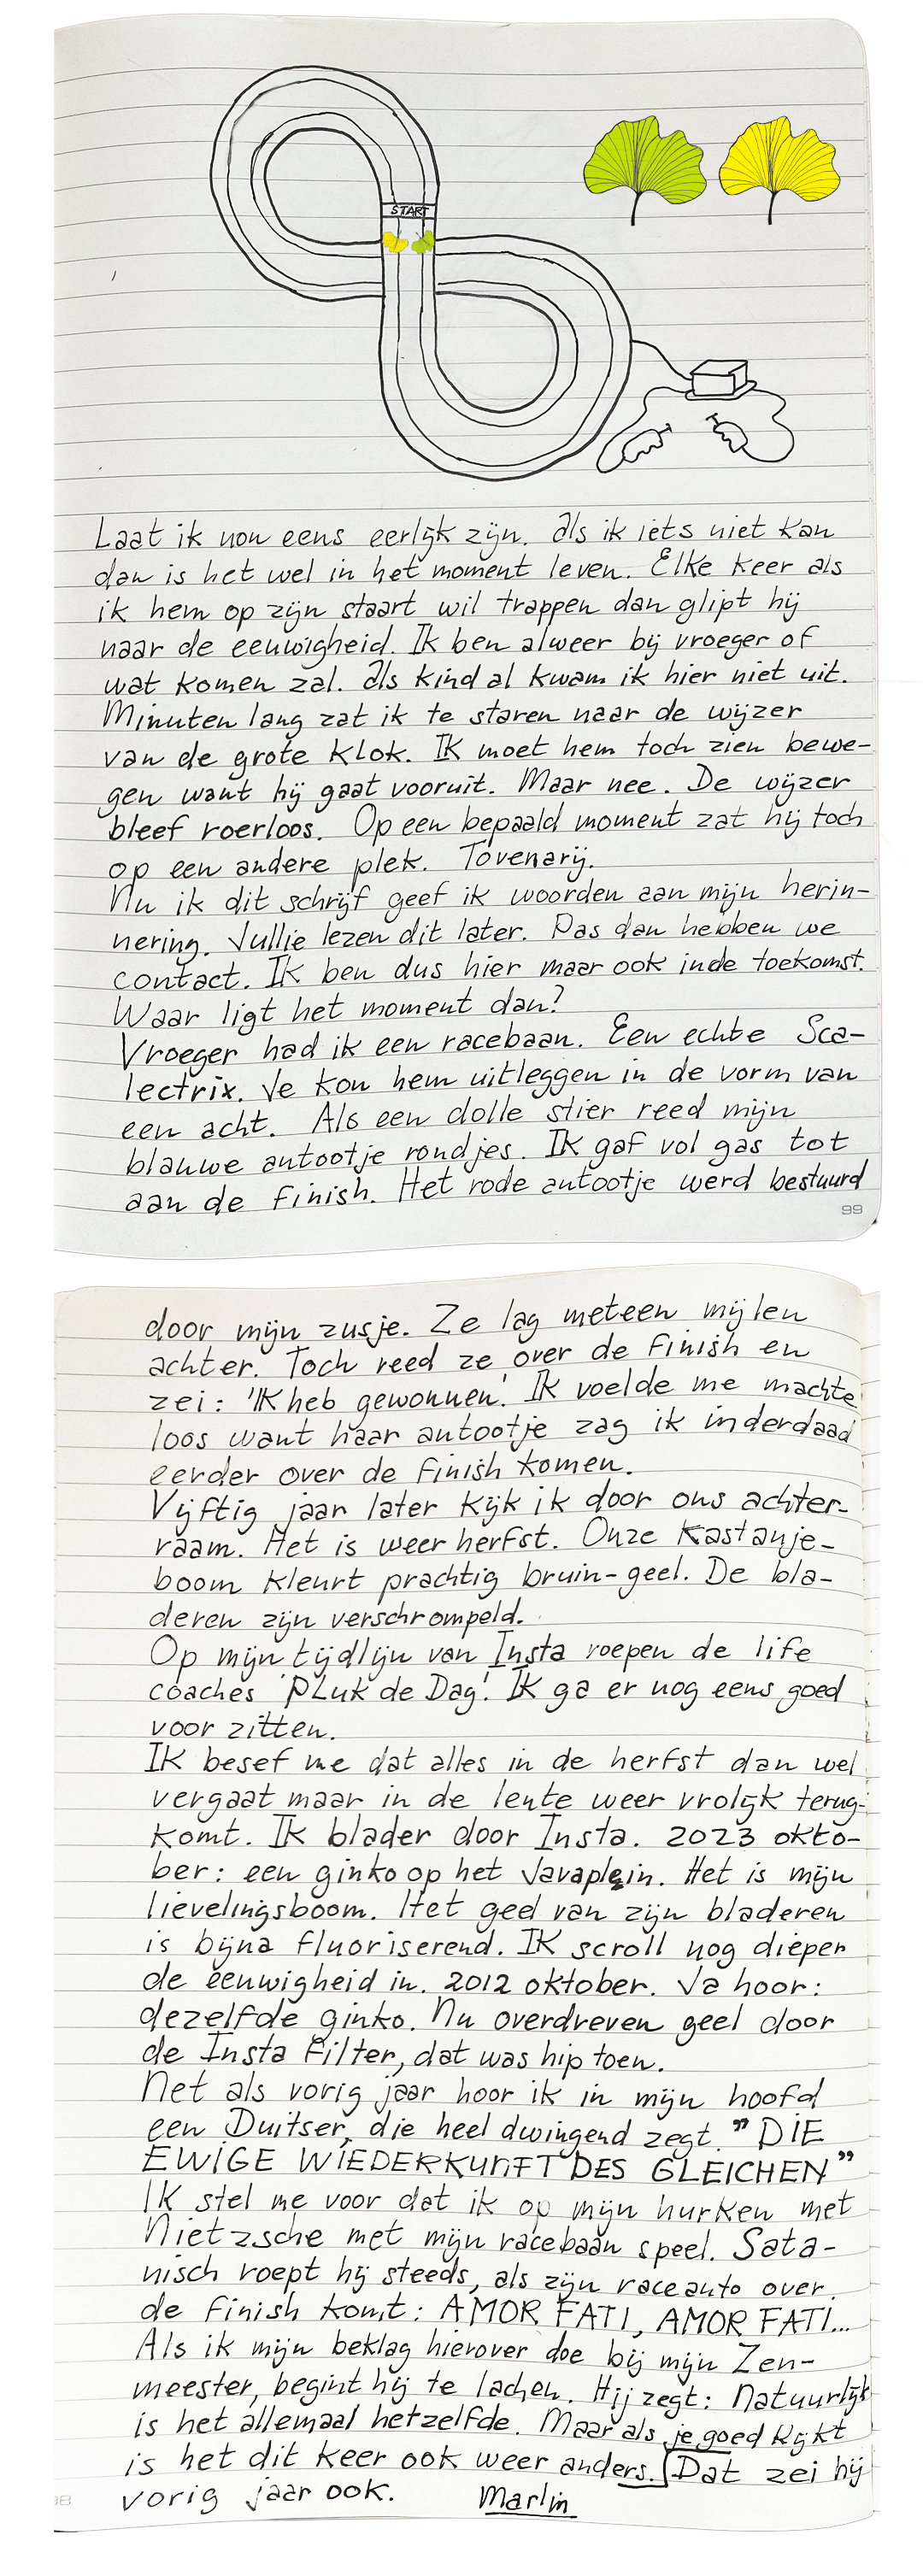 START
Laat ik nou eens eerlijk zijn. Als ik iets niet kan
dan is het wel in het moment leven. Elke keer als
ik hem op zijn staart wil trappen dan glipt hij
naar de eeuwigheid. Ik ben alweer bij vroeger of
wat komen zal. Als kind al kwam ik hier niet uit.
Minuten lang zat ik te staren naar de wijzer
van de grote klok. Ik moet hem toch zien bewe-
gen want hij gaat vooruit. Maar nee. De wijzer
bleef roerloos. Op een bepaald moment zat hij toch
op een andere plek. Tovenarij.
Nu ik dit schrijf geef ik woorden aan mijn herin-
nering. Jullie lezen dit later. Pas dan hebben we
contact. Ik ben dus hier maar ook in de toekomst.
Waar ligt het moment dan?
Vroeger had ik een racebaan. Een echte Sca-
lectrix. Je kon hem uitleggen in de vorm van
een acht. Als een dolle stier reed mijn
blauwe autootje rondjes. Ik gaf vol gas tot
aan de finish. Het rode autootje werd bestuurd
99
door mijn zusje. Ze lag meteen mijlen
achter. Toch reed ze over de finish en
zei: 'Ik heb gewonnen'. Ik voelde me machte
loos want haar autootje zag ik inderdaad
eerder over de finish komen.
Vijftig jaar later kijk ik door ons achter-
raam. Het is weer herfst. Onze kastanje-
boom kleurt prachtig bruin-geel. De bla-
deren zijn verschrompeld.
Op mijn tijdlijn van Insta roepen de life
coaches 'Pluk de Dag'. Ik ga er nog eens goed
voor zitten.
Ik besef me dat alles in de herfst dan wel
vergaat maar in de lente weer vrolijk terug-
komt. Ik blader door Insta. 2023 okto-
ber: een ginko op het Javaplein. Het is mijn
lievelingsboom. Het geel van zijn bladeren
is bijna fluoriserend. Ik scroll nog dieper
de eeuwigheid in. 2012 oktober. Ja hoor:
dezelfde ginko. Nu overdreven geel door
de Insta filter, dat was hip toen.
Net als vorig jaar hoor ik in mijn hoofd
een Duitser, die heel dwingend zegt. "DIE
EWIGE WIEDERKUNFT DES GLEICHEN"
Ik stel me voor dat ik op mijn hurken met
Nietzsche met mijn racebaan speel. Sata-
nisch roept hij steeds, als zijn raceauto over
de finish komt: AMOR FATI, AMOR FATI...
Als ik mijn beklag hierover doe bij mijn Zen-
meester, begint hij te lachen. Hij zegt: Natuurlijk
is het allemaal hetzelfde. Maar als je goed kijkt
is het dit keer ook weer anders. Dat zei hij
98 vorig jaar ook. Marlin